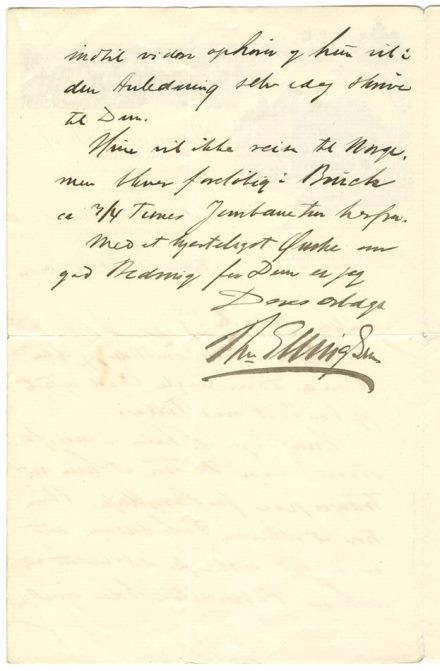 indtil videre ophører og hun vil i
den Anledning selv idag skrive
til Dem.
Hun vil ikke reise til Norge,
men bliver foreløbig i
ca 3/4 Times Jernbanetur herfra.
Med et hjerteligst Ønske om
god Bedring for Dem er jeg
Deres erbødige